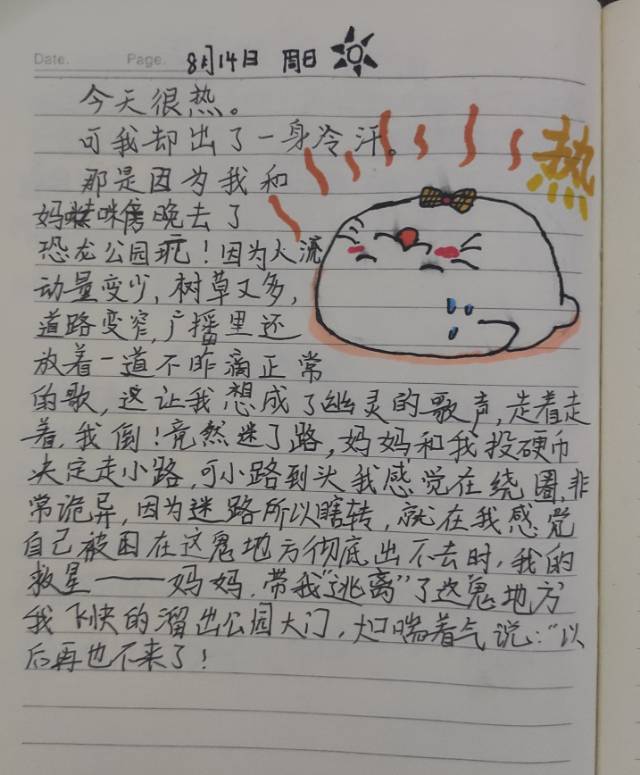 Date. Page. 8月14日 周日
今天很热。
可我却出了一身冷汗。
热
那是因为我和
妈咪傍晚去了
恐龙公园玩!因为人流
动量变少,树草又多,
道路变窄,广播里还
放着一道不咋滴正常
的歌,这让我想成了幽灵的歌声,走着走
着,我倒!竟然迷了路,妈妈和我投硬币
决定走小路,可小路到头我感觉在绕圈,非
常诡异,因为迷路所以瞎转,就在我感觉
自己被困在这鬼地方彻底出不去时,我的
救星——妈妈,带我“逃离”了这鬼地方
我飞快的溜出公园大门,大口喘着气说:“以
后再也不来了!